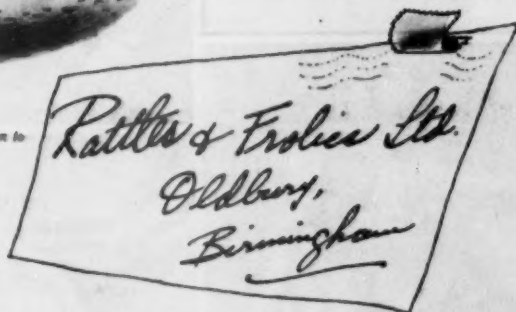 Rattles & Frolics Ltd.
Oldbury,
Birmingham